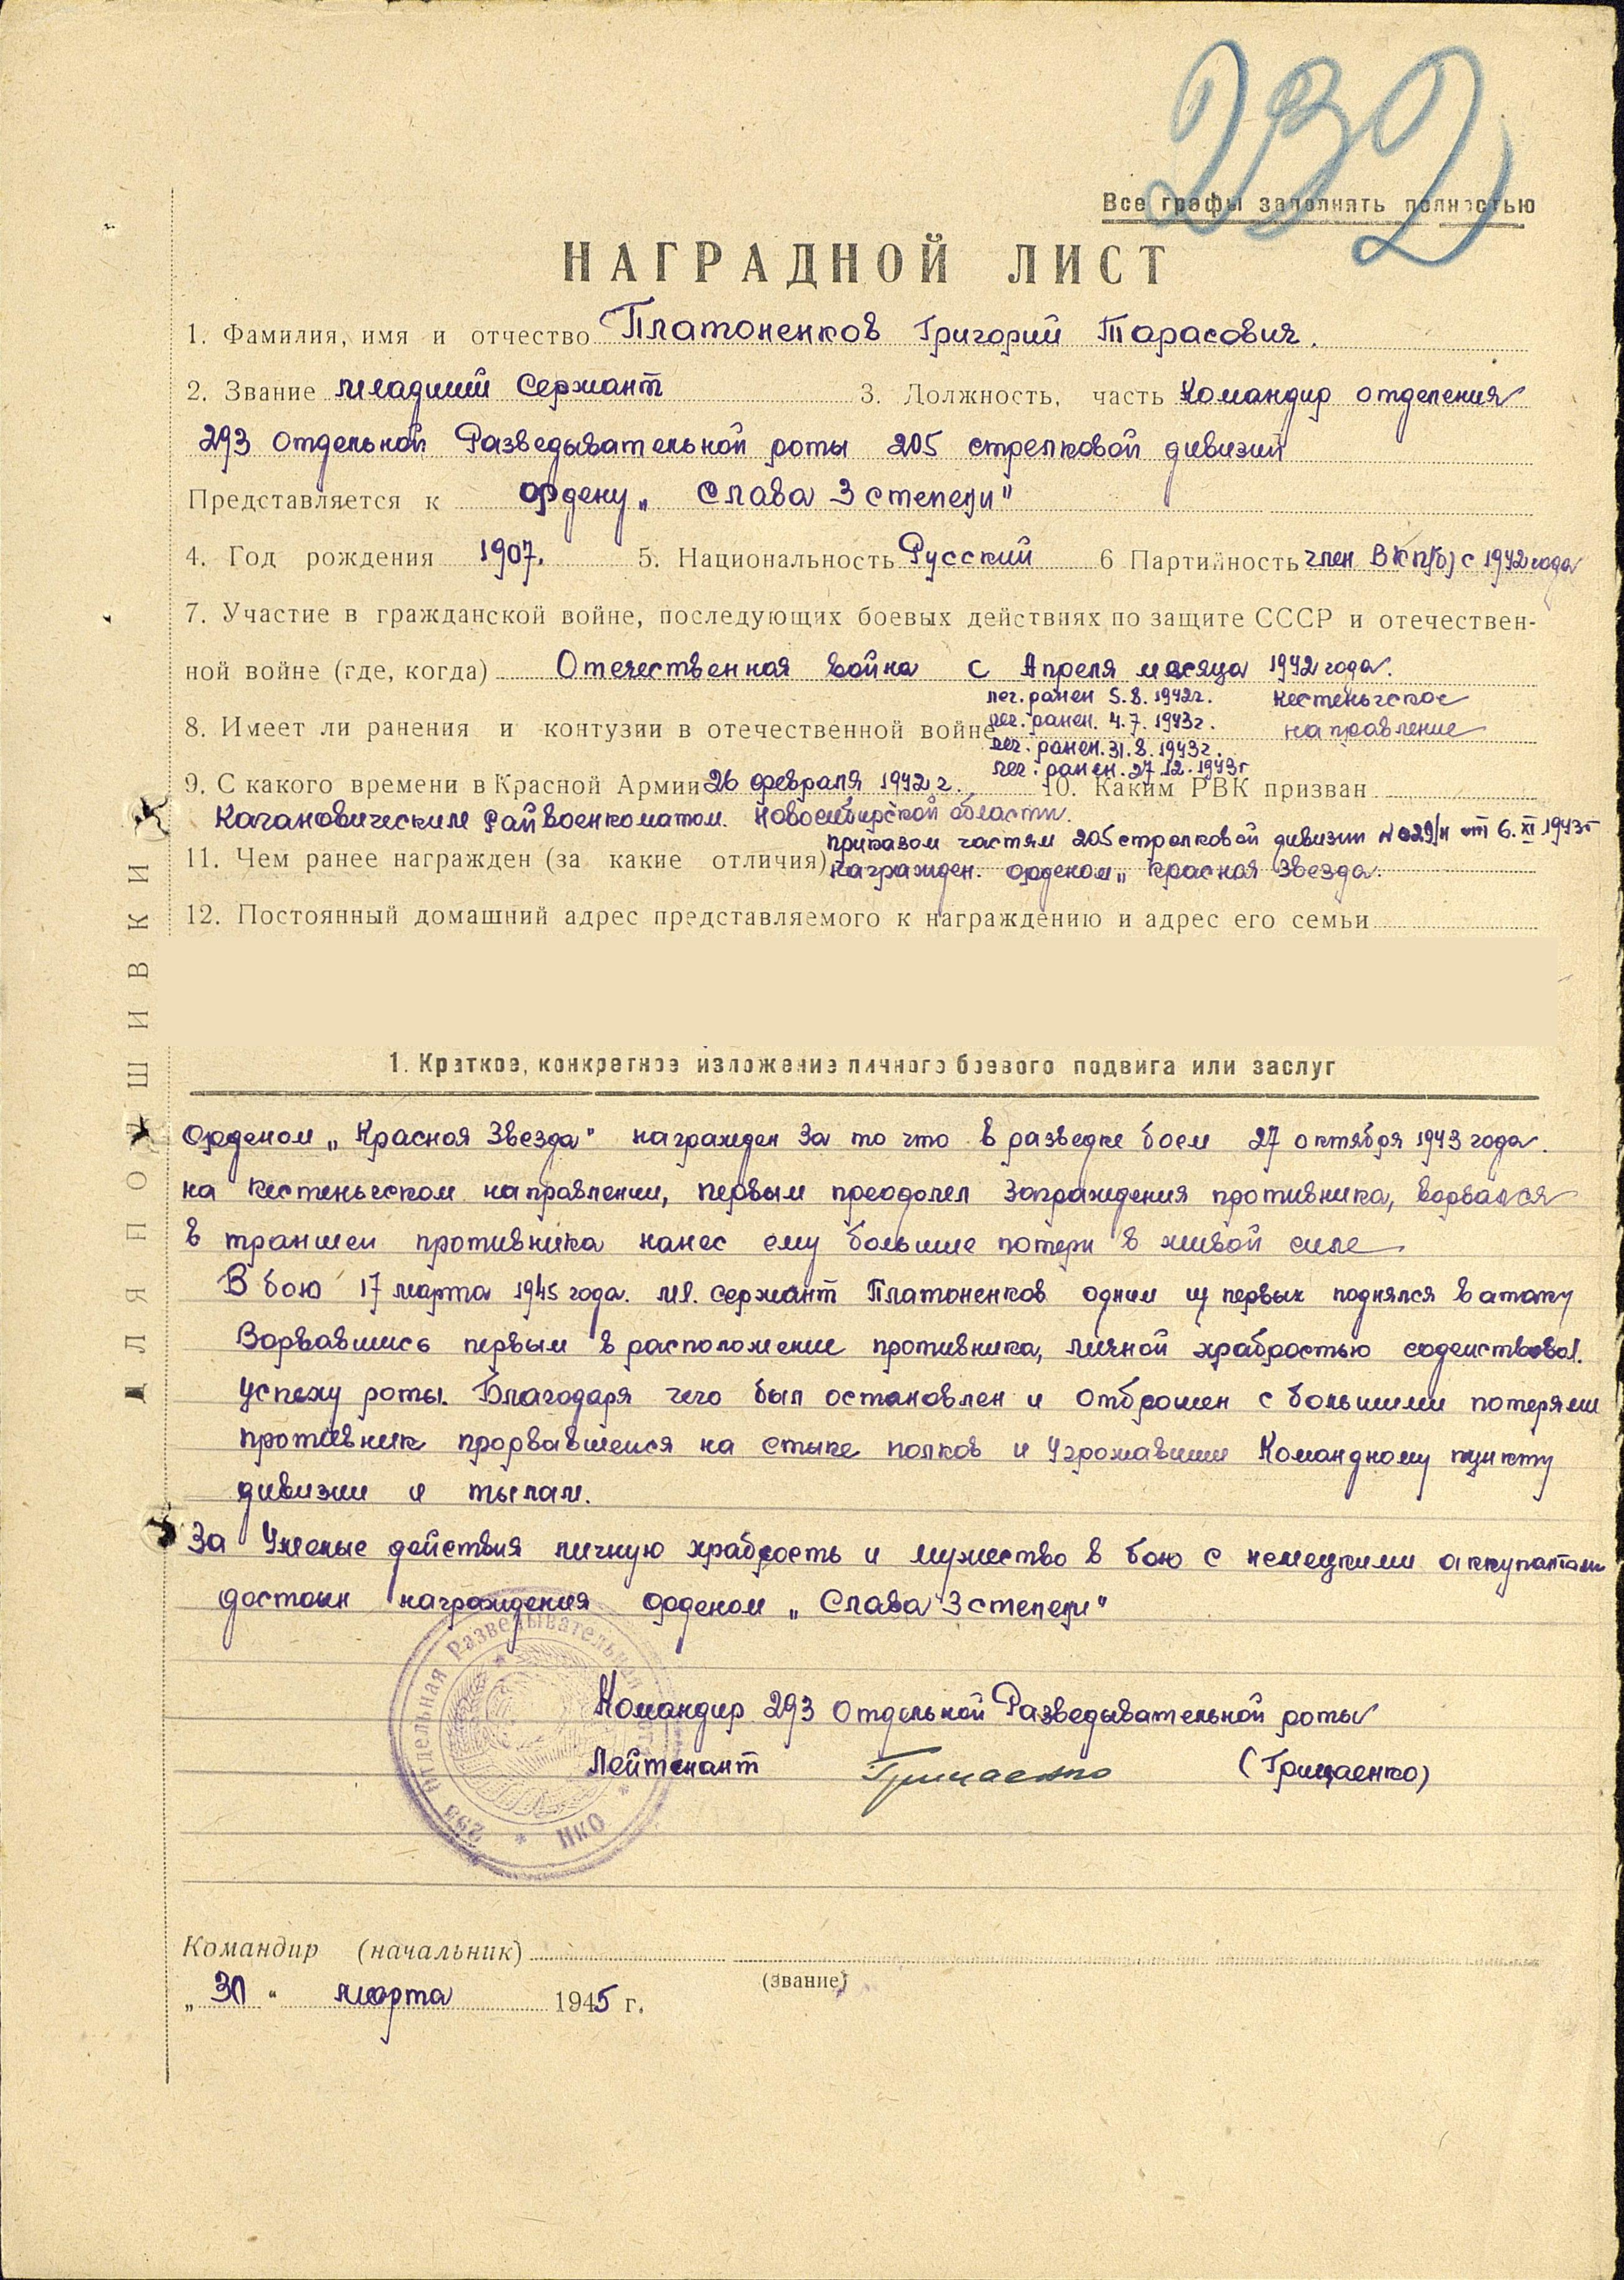 232
Все графы заполнять полностью
НАГРАДНОЙ ЛИСТ
1. Фамилия, имя и отчество Платоненков Григорий Тарасович.
2. Звание младший Сержант 3. Должность, часть Командир отделения
293 отдельной Разведывательной роты 205 стрелковой дивизии
Представляется к ордену „Слава 3 степени"
4. Год рождения 1907. 5. Национальность Русский 6 Партийность член ВКП(б) с 1942 года
7. Участие в гражданской войне, последующих боевых действиях по защите СССР и отечествен-
ной войне (где, когда) Отечественная война с Апреля месяца 1942 года.
лег. ранен 5.8.1942г. Кестеньгское
8. Имеет ли ранения и контузии в отечественной войне лег. ранен. 4.7.1943г. направление
лег. ранен. 31.8.1943г.
лег. ранен. 27.12.1943г
9. С какого времени в Красной Армии 26 февраля 1942 г. 10. Каким РВК призван
Кагановическим Райвоенкоматом. Новосибирской области.
приказом частям 205 стрелковой дивизии №029/н от 6.XI 1943г
11. Чем ранее награжден (за какие отличия) награжден. орденом „Красная Звезда.
12. Постоянный домашний адрес представляемого к награждению и адрес его семьи
ДЛЯ ПОДШИВКИ
1. Краткое, конкретное изложение личного боевого подвига или заслуг
Орденом „Красная Звезда" награжден за то что в разведке боем 27 октября 1943 года.
на кестеньгском направлении, первым преодолел заграждения противника, ворвался
в траншеи противника нанес ему большие потери в живой силе
В бою 17 марта 1945 года. мл. сержант Платоненков одним из первых поднялся в атаку
Ворвавшись первым в расположение противника, личной храбростью содействовал.
успеху роты. Благодаря чего был остановлен и отброшен с большими потерями
противник прорвавшейся на стыке полков и Угрожавший Командному пункту
дивизии и тылам.
За Умелые действия личную храбрость и мужество в бою с немецкими
достоин награждения орденом „Слава 3 степени"
Командир 293 Отдельной Разведывательной роты
Лейтенант Грищаенко (Грищаенко)
293 Отдельная Разведывательная рота * НКО *
Командир (начальник)
(звание)
„30" марта 1945 г.